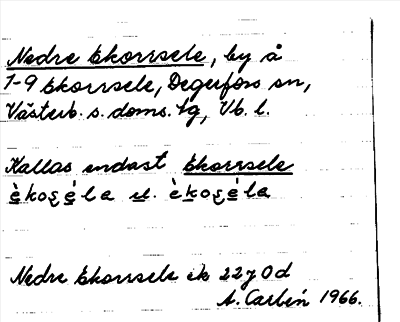 Nedre Ekorrsele, by å
1-9 Ekorrsele, Degerfors sn,
Västerb. s. doms. tg, Vb. l.
Kallas endast Ekorrsele
èkoṣéla el. èkoṣéla
Nedre Ekorrsele ek 22 y 0 d
A. Carlén 1966.